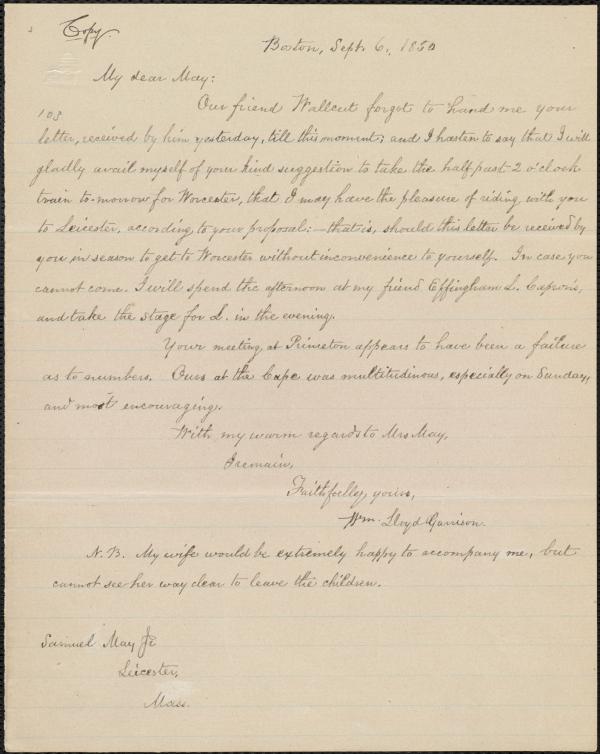 Copy.
Boston, Sept. 6, 1850
My dear May:
103
Our friend Wallcut forgot to hand me your
letter, received by him yesterday, till this moment; and I hasten to say that I will
gladly avail myself of your kind suggestion to take the half past 2 o'clock
train to-morrow for Worcester, that I may have the pleasure of riding with you
to Leicester, according to your proposal:—that is, should this letter be received by
you in season to get to Worcester without inconvenience to yourself. In case you
cannot come. I will spend the afternoon at my friend Effingham L. Capron's,
and take the stage for L. in the evening.
Your meeting at Princeton appears to have been a failure
as to numbers. Ours at the Cape was multitudinous, especially on Sunday,
and most encouraging.
With my warm regards to Mrs May,
I remain,
Faithfully, yours,
Wm. Lloyd Garrison.
N.B. My wife would be extremely happy to accompany me, but
cannot see her way clear to leave the children.
Samuel May Jr
Leicester,
Mass.